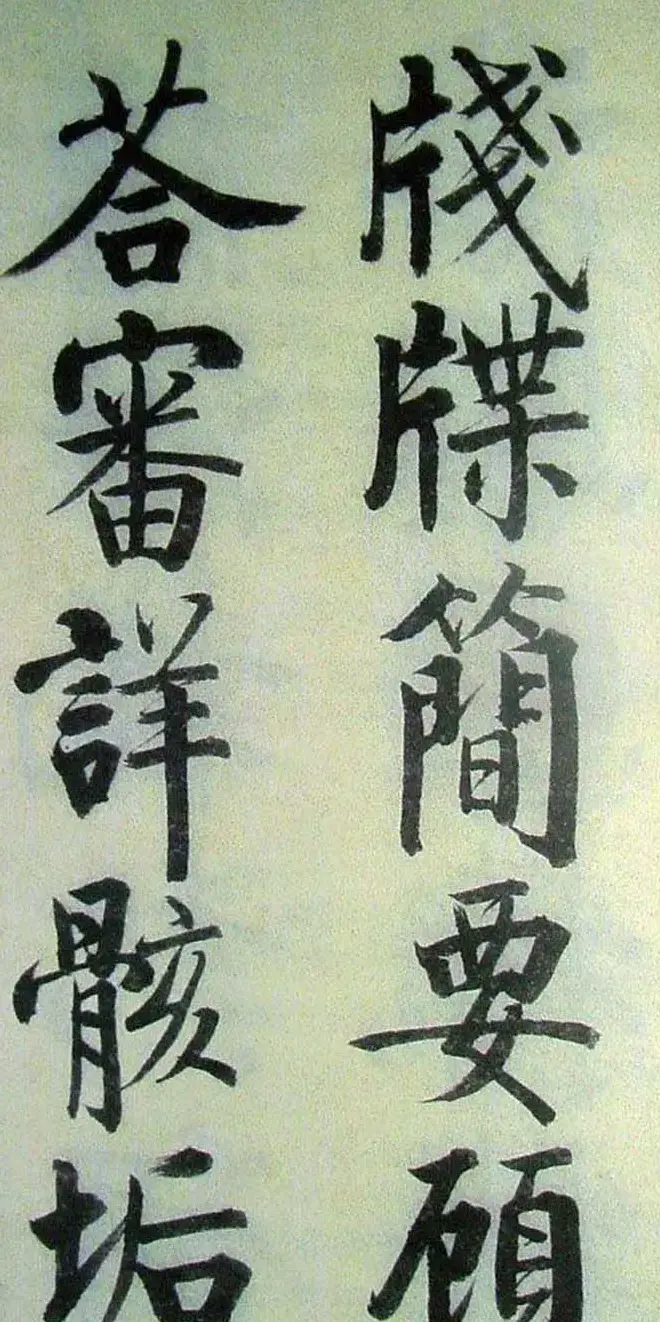 牋牒簡要顧
荅審詳骸垢